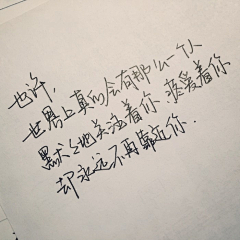 也许，
世界上真的会有那么一个人
默默地关注着你 疼爱着你
却永远不再靠近你.